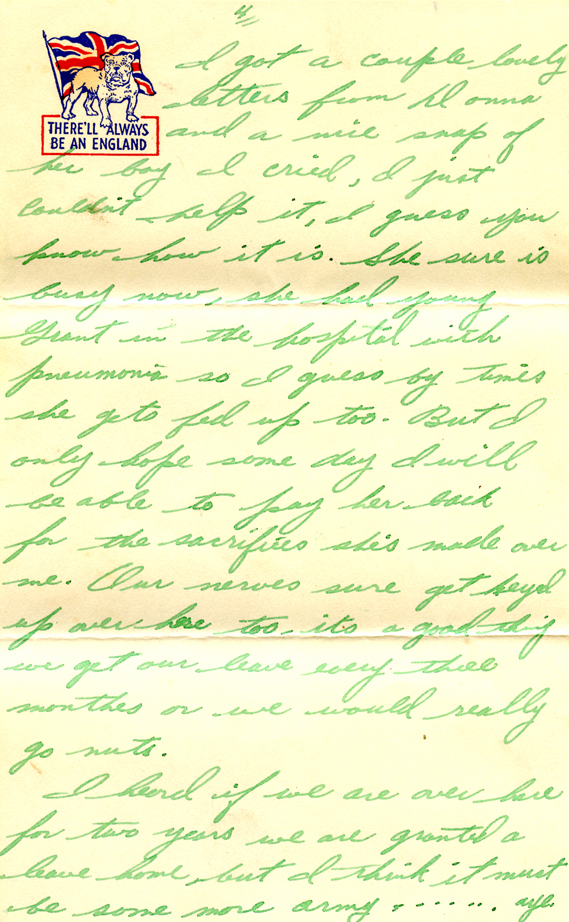 4
I got a couple lovely
letters from Donna
and a nice snap of
THERE'LL ALWAYS
BE AN ENGLAND
her boy I cried, I just
couldn't help it, I guess you
know how it is. She sure is
busy now, she had young
Grant in the hospital with
pneumonia so I guess by times
she gets fed up too. But I
only hope some day I will
be able to pay her back
for the sacrifices she's made over
me. Our nerves sure get keyd
up over here too, its a good thing
we get our leave every three
monthes or we would really
go nuts.
I heard if we are over here
for two years we are granted a
leave home, but I think it must
be some more army . . . . . . . aye.